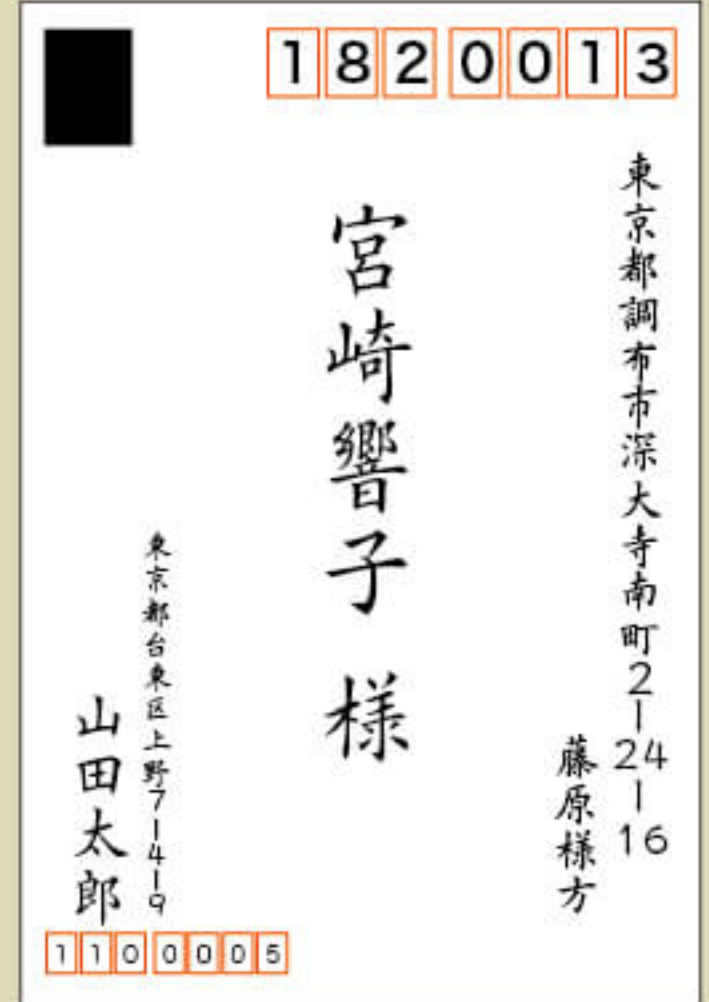 1820013
東京都調布市深大寺南町2-24-16
藤原様方
宮崎響子 様
東京都台東区上野7-4-9
山田太郎
1100005